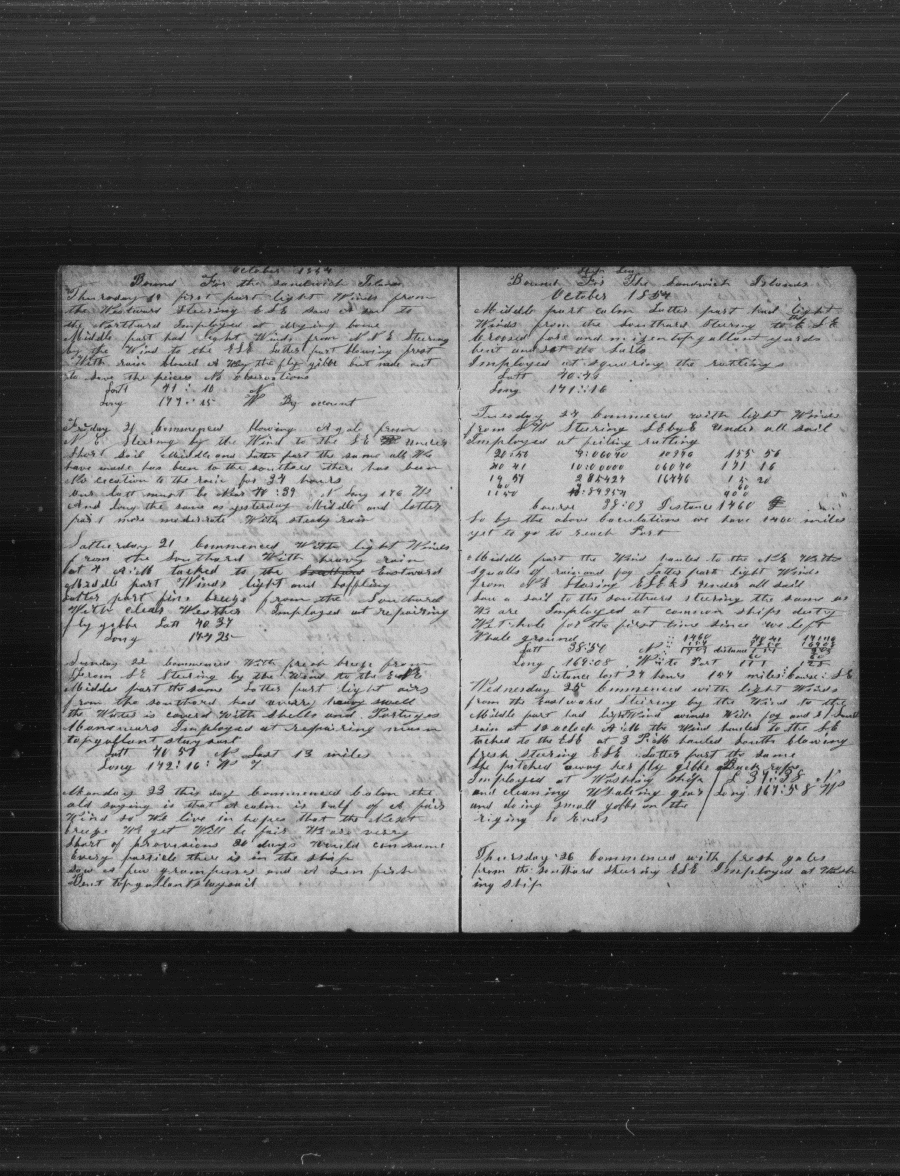 October 1854
Bound For the sandwich Islands
Thursday 19 first part light Winds from
the Westward Steering ESE saw a sail to
the Northard Imployed at drying bone
Middle part had light Winds from N N E Steering
by the Wind to the ESE Latter part blowing fresh
With rain blowed away the fly gibbe but made out
to save the pieces No Observations
Latt 41 : 10 N
Long 177 : 15 W By account
Friday 20 commenced blowing A gale from
N E. Stering by the Wind to the SE under
Short sail Middle and Latter part the same all We
have made has been to the southard there has been
No cecation to the rain for 34 hours
our Latt must be About 40 : 39 N Long 176 W
And long the same as yesterday Middle and latter
part more moderate With steady rain
Satturday 21 Commenced With light Winds
from the Southard With heavy rain
at 4 A.M. tacked to the Southard Eastward
Middle part Winds light and baffling
Latter part fine breeze from the Southard
With clear Weather Imployed at repairing
fly gibbe Latt 40 37
Long 174 25
Sunday 22 commenced With fresh breeze from
from SE Steering by the Wind to the ENE
Middle part the same Latter part light airs
from the southard had a very heavy swell
the Water is covered With Shells and Portuges
Manawars Imployed at repairing mizen
topgallant staysail
Latt 40 57 N Last 13 miles
Long 172 : 16 : W
Monday 23 this day Commenced Calm the
old saying is that A calm is half of A fair
Wind so We live in hopes that the Next
breeze We get Will be fair We are very
Short of provisions 20 days would consume
Every particle there is in the ship
Saw a few grampuses and A Sun fish
Bent topgallant staysail
Ship
Bound For The Sandwich Islands
October 1854
Middle part calm Latter part had light
Winds from the Southard steering to the E S E
Crossed fore and mizentopgallant yards
bent and set the Sails
Imployed at squaring the ratlings
Latt 40.46
Long 171 : 16
Tuesday 24 Commenced with light Winds
from S W Steering SE by E under all sail
Imployed at puting ratling
20 56 9:06040 10396 155 56
40 41 10:00000 06070 171 16
19 51 285424 16446 15 20
60 60
1150 900
Course 38:03 Distance 1460
So by the above Caculations we have 1460 miles
yet to go to reach Port
Middle part the Wind hauled to the NE With
squalls of rain and fog Latter part light Winds
from NE Staring ESE&S under all sail
saw a sail to the southard steering the same as
We are Imployed at common ships duty
Wet hole for the first time since we left
Whale ground
Latt 38:54 N distance
Long 169:08 W to Port
Distance last 24 hours 154 miles course : SE
Wednesday 25 Commenced with light Winds
from the Eastward Steering by the Wind to the
Middle part had light Wind Winds With fog and
rain at 10 oclock A.M. the Wind hauled to the SE
tacked to the ESE at 3 P.M. hauled South blowing
fresh steering ESE Latter part the same
She pitched away her fly gibbe Back rope
Imployed at Washing Ship L 39:38 N
and cleaning Whaleing gear Long 167:58 W
and doing small jobs on the
riging So Ends
Thursday 26 Commenced with fresh gales
from the Southard steering ESE Imployed at Wash
ing ship